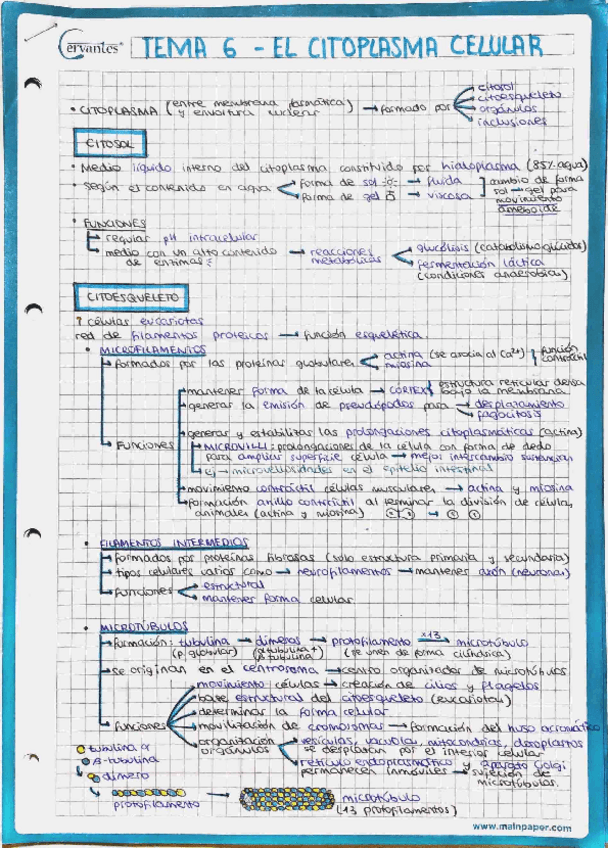 Cervantes®
TEMA 6 - EL CITOPLASMA CELULAR
• CITOPLASMA (entre membrana plasmática y envoltura nuclear) → formado por
citosol
citoesqueleto
orgánulos
inclusiones
CITOSOL
• Medio líquido interno del citoplasma constituido por hialoplasma (85% agua)
• según el contenido en agua
forma de sol → fluida
forma de gel → viscosa
cambio de forma
sol → gel para
movimiento
ameboide
• FUNCIONES
→ regular pH intracelular
→ medio con un alto contenido de enzimas: → reacciones metabólicas
glucólisis (catabolismo glúcidos)
fermentación láctica
(condiciones anaerobias)
CITOESQUELETO
células eucariotas
red de filamentos proteicos → función esquelética.
• MICROFILAMENTOS
→ formados por las proteínas globulares
actina (se asocia al Ca2+)
miosina
función contráctil
→ Funciones
→ mantener forma de la célula → CORTEX
estructura reticular densa
bajo la membrana
→ generar la emisión de pseudópodos para
→ desplazamiento
→ fagocitosis
→ generar y estabilizar las prolongaciones citoplasmáticas (actina)
→ MICROVILLI: prolongaciones de la célula con forma de dedo
para ampliar superficie célula → mejor intercambio sustancias
→ ej → microvellosidades en el epitelio intestinal
→ movimiento contráctil células musculares → actina y miosina
→ formación anillo contráctil al terminar la división de células
animales (actina y miosina)
• FILAMENTOS INTERMEDIOS
→ formados por proteínas fibrosas (solo estructura primaria y secundaria)
→ tipos celulares varios como → neurofilamentos → mantener axón (neuronas)
→ funciones
estructural
mantener forma celular
• MICROTÚBULOS
→ formación: tubulina → dímeros → protofilamento x13 → microtúbulo
(p. globular) (α tubulina + β tubulina) (se unen de forma cilíndrica)
→ se originan en el centrosoma → centro organizador de microtúbulos
→ funciones
movimiento células → creación de cilios y flagelos
base estructural del citoesqueleto (eucariotas)
determinar la forma celular
movilización de cromosomas → formación del huso acromático
organización orgánulos
→ vesículas, vacuolas, mitocondrias, cloroplastos
se desplazan por el interior celular
→ retículo endoplasmático y aparato Golgi
permanecen inmóviles → sujeción de
microtúbulos.
tubulina α
β-tubulina
dímero
protofilamento
microtúbulo
(13 protofilamentos)
www.mainpaper.com